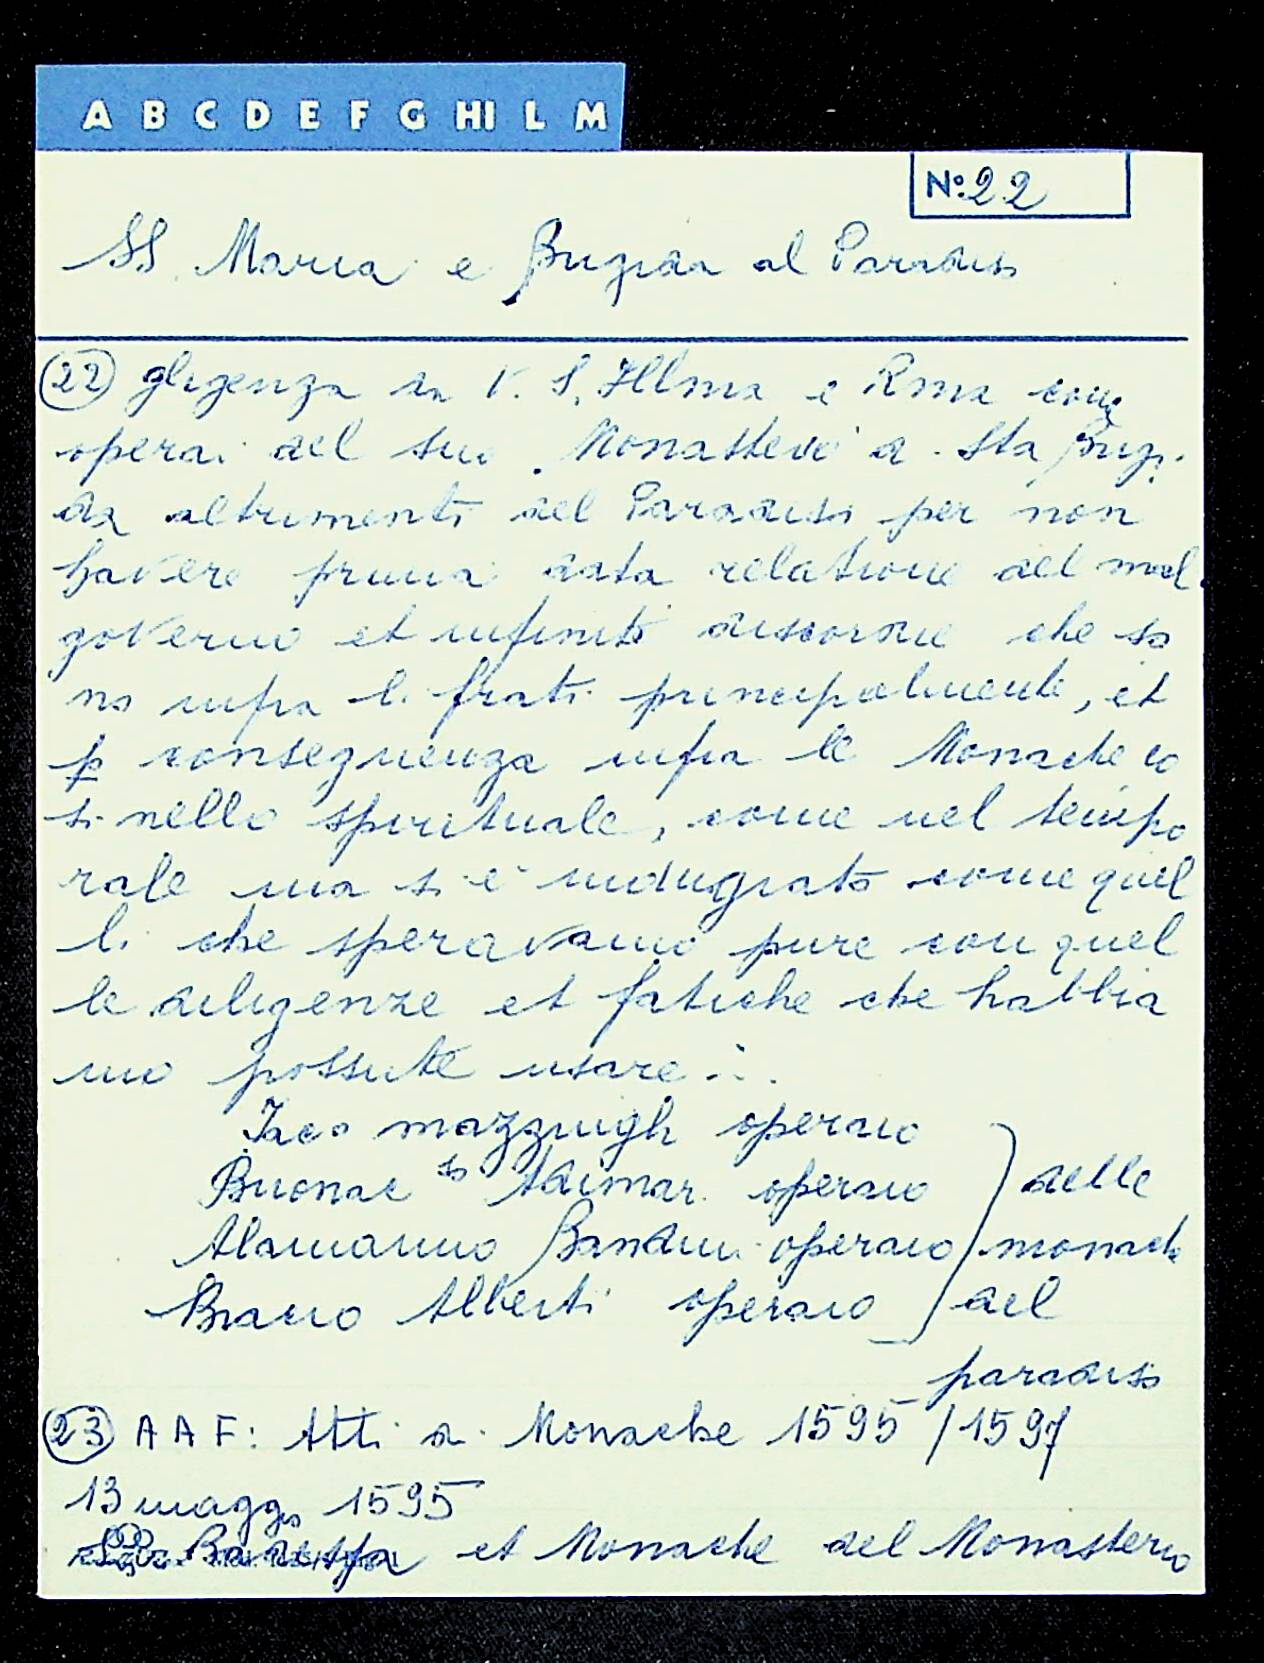 A B C D E F G HI L M
Nº 22
SS. Maria e Brigida al Paradiso
(22) gligenza da V. S. Illma e Rma come
operai del suo Monasterio di Sta Brigi
da altrimenti del Paradiso per non
havere prima data relatione del mal
governo et infinite discordie che so
no infra li frati principalmente, et
p conseguenza infra le Monache co
si nello spirituale, come nel tempo
rale ma si è indugiato come quel
li che speravamo pure con quel
le diligenze et fatiche che habbia
mo possute usare ∴
Jaco mazzingh operaio
Buonac so Adimar. operaio
Alamanno Bandini operaio
Braccio Alberti operaio
delle
monache
del
paradiso
(23) A A F: Atti di Monache 1595 / 1597
13 maggo 1595
Badessa et Monache del Monasterio